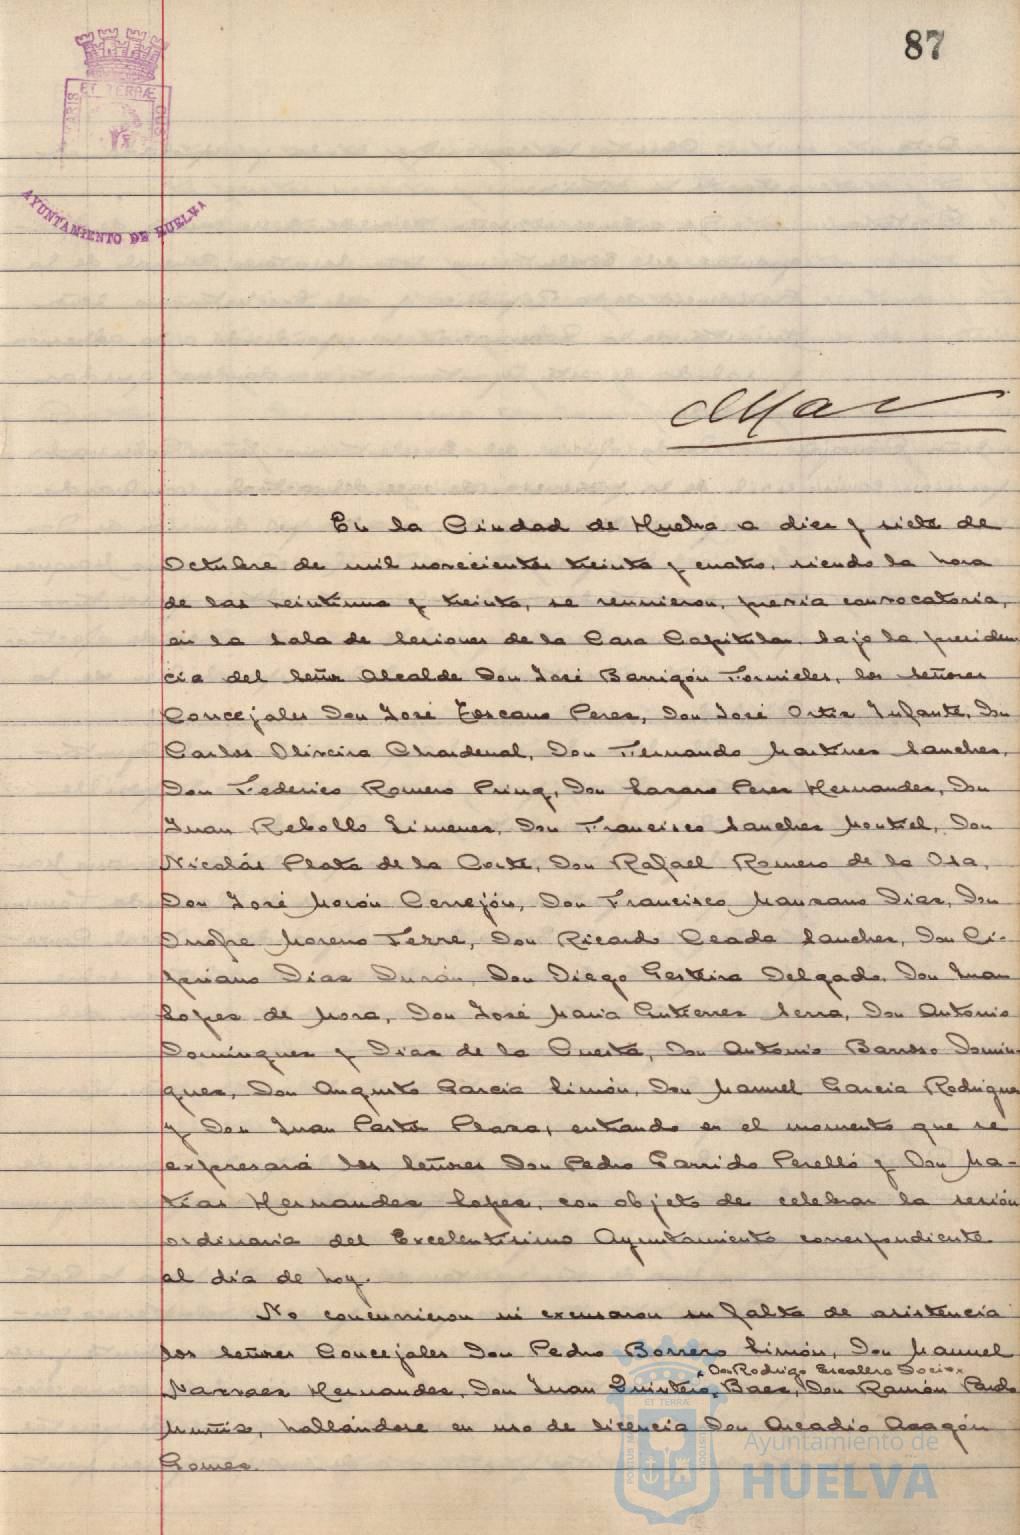 87
ET TERRÆ
AYUNTAMIENTO DE HUELVA
En la Ciudad de Huelva a diez y siete de
Octubre de mil novecientos treinta y cuatro, siendo la hora
de las veintiuna y treinta, se reunieron, previa convocatoria,
en la Sala de Sesiones de la Casa Capitular, bajo la presiden
cia del Señor Alcalde Don José Barrigón Fornieles, los señores
Concejales Don José Toscano Perez, Don José Ortiz Infante, Don
Carlos Oliveira Chardenal, Don Fernando Martinez Sanchez,
Don Federico Romero Prinz, Don Lazaro Perez Hernandez, Don
Juan Rebollo Jimenez, Don Francisco Sanchez Montiel, Don
Nicolás Plata de la Corte, Don Rafael Romero de la Osa,
Don José Morón Cerrejón, Don Francisco Manzano Diaz, Don
Onofre Moreno Ferre, Don Ricardo Ceada Sanchez, Don Ci-
priano Diaz Durán, Don Diego Gestira Delgado, Don Juan
Lopez de Mora, Don José Maria Gutierrez Serra, Don Antonio
Dominguez y Diaz de la Cuesta, Don Antonio Barroso Domin-
guez, Don Augusto Garcia Simón, Don Manuel Garcia Rodriguez
y Don Juan Plaza, entrando en el momento que se
expresará los señores Don Pedro Garrido Perelló y Don Ma-
tías Hernandez Lopez, con objeto de celebrar la sesión
ordinaria del Excelentísimo Ayuntamiento correspondiente
al día de hoy.
No concurrieron ni excusaron su falta de asistencia
los Señores Concejales Don Pedro Borrero Limón, Don Manuel
Don Rodrigo Escalero
Narvaez Hernandez, Don Juan Quintero Baez, Don Ramón Pardo
Muñiz, hallándose en uso de licencia Don Arcadio Aragón
Gomez.
Ayuntamiento de
HUELVA